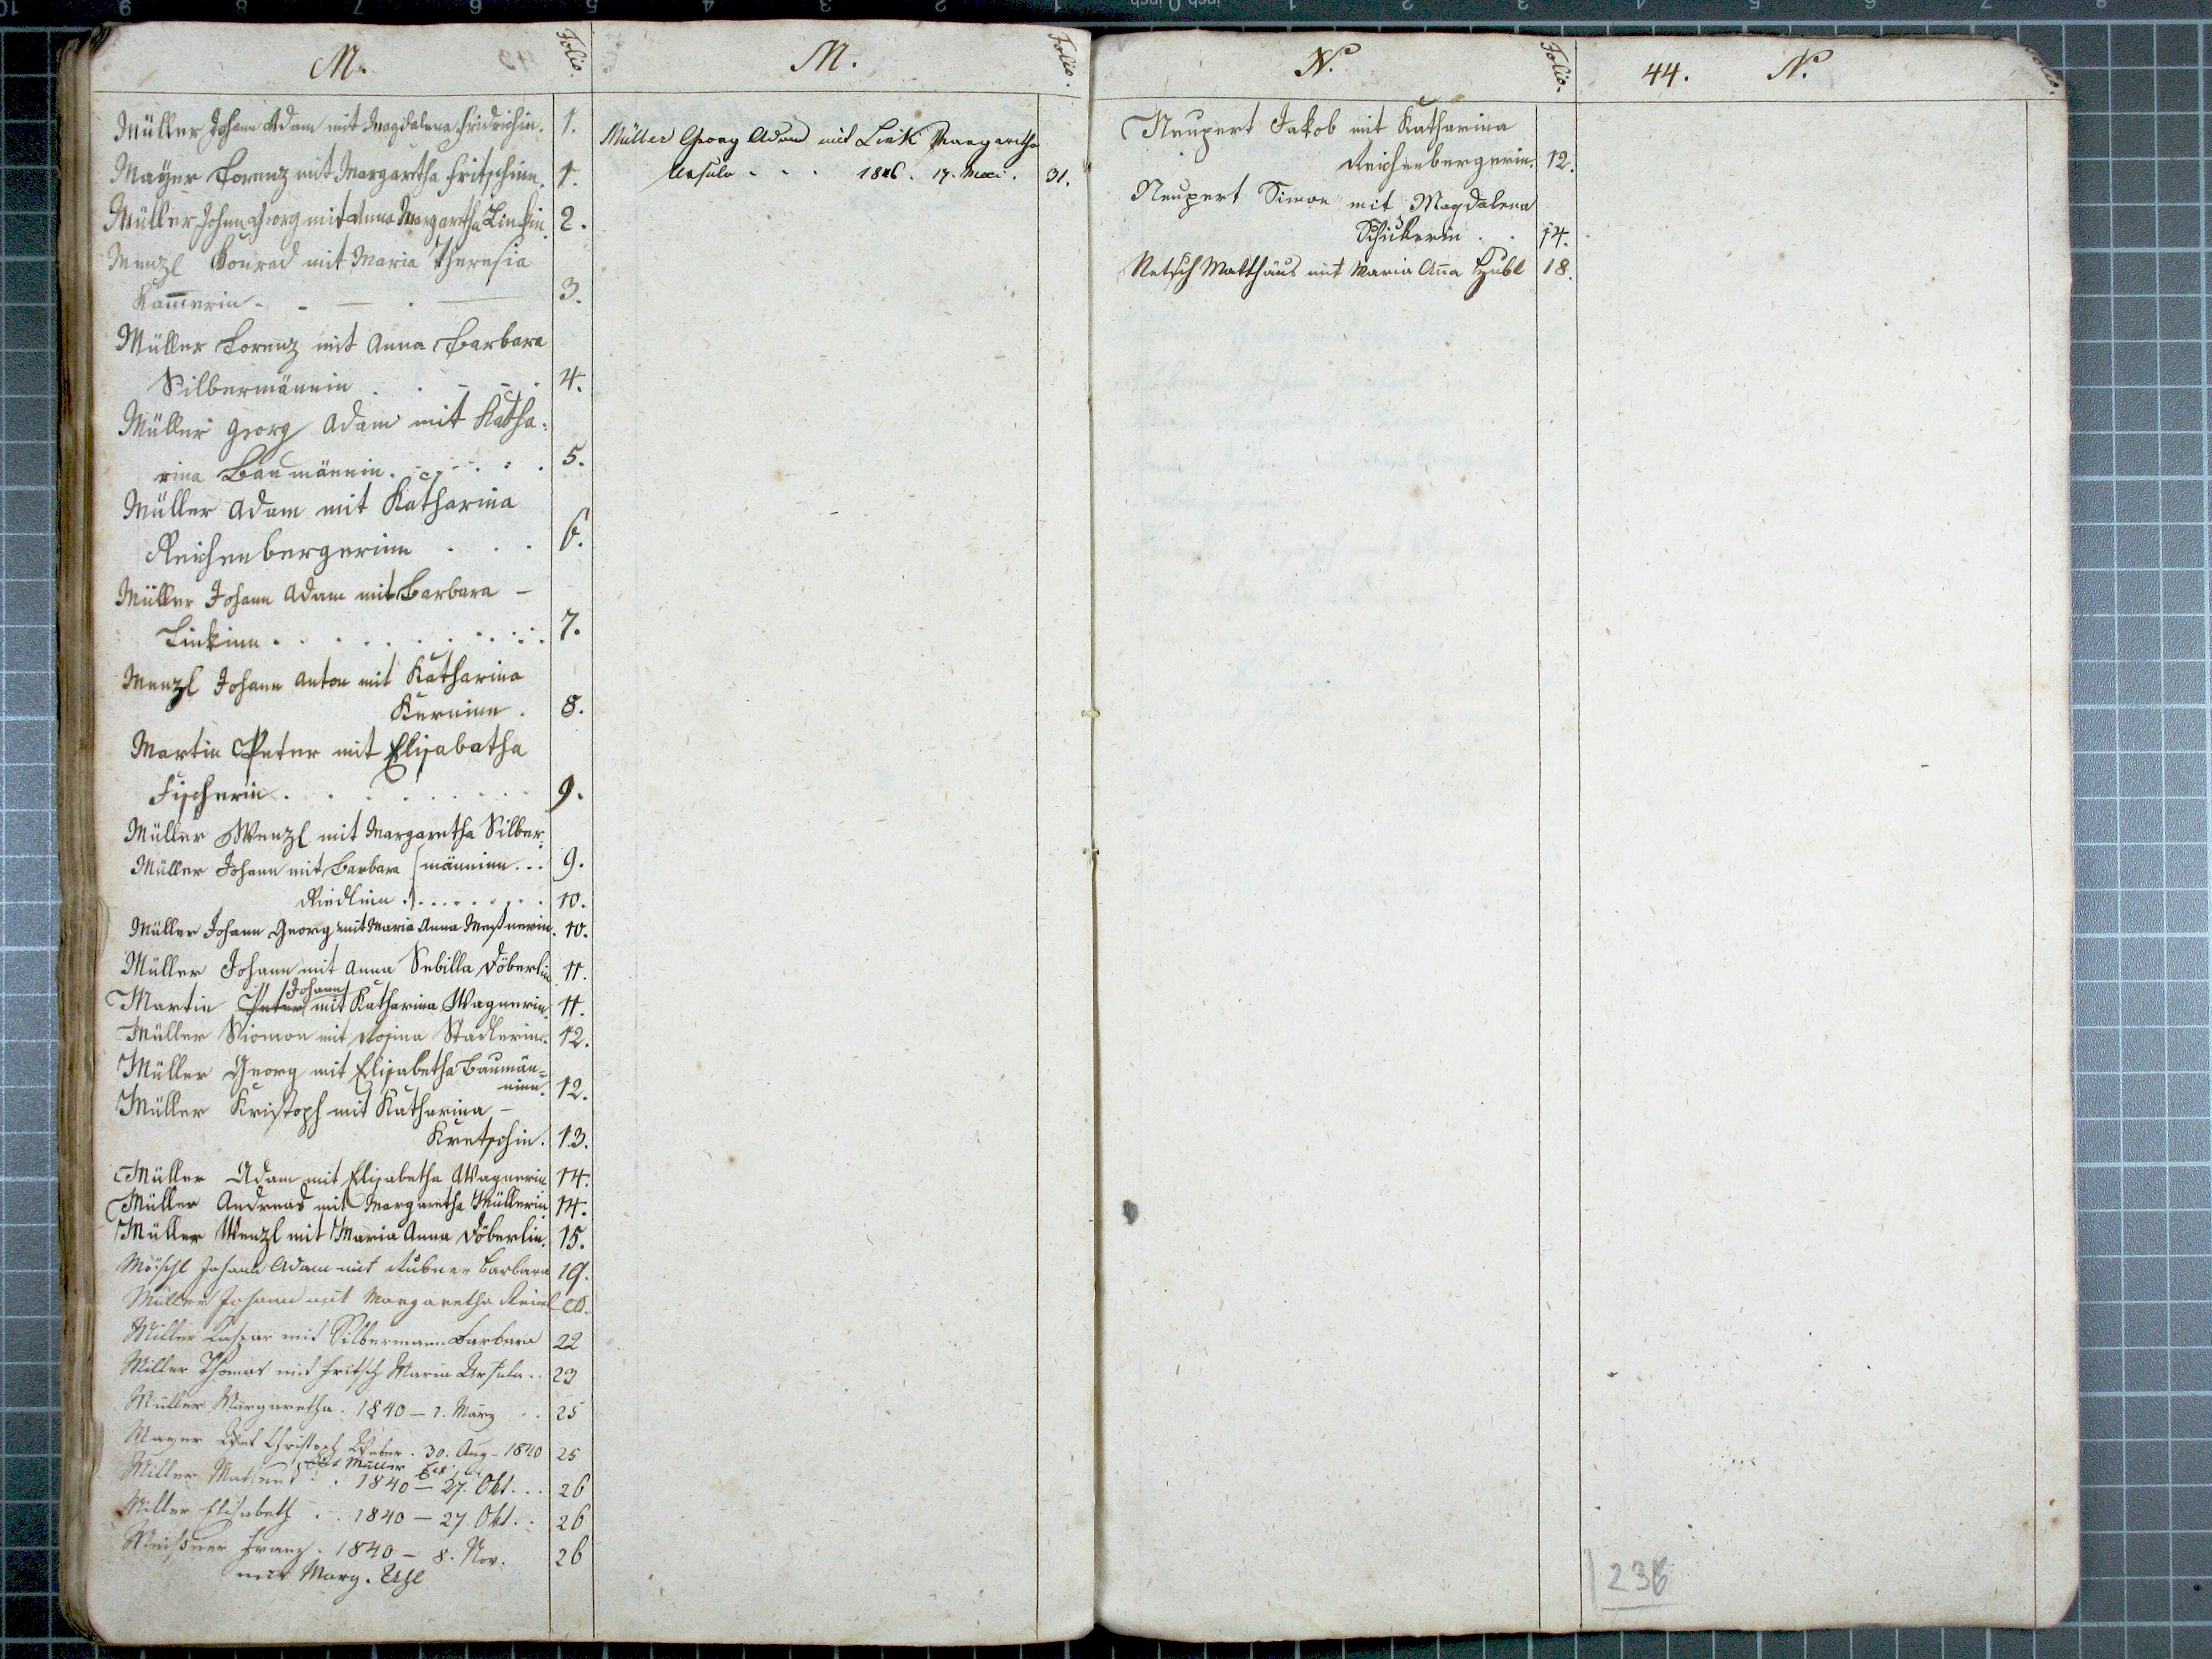 M.
Folio.
Müller Johann Adam mit Magdalena Fridrichin. 1.
Mayer Lorenz mit Margaretha Fritschinn. 1.
Müller Johann Georg mit Anna Margaretha Linkin. 2.
Menzl Konrad mit Maria Theresia
Kam̄erin - - — . — 3.
Müller Lorenz mit Anna Barbara
Silbermännin . . - - . 4.
Müller Georg Adam mit Katha-
rina Baumännin. . . . . . 5.
Müller Adam mit Katharina
Reichenbergerinn . . . 6.
Müller Johann Adam mit Barbara –
Linkinn . . . . . . . . . 7.
Menzl Johann Anton mit Katharina
Kerninn . 8.
Martin Peter mit Elisabetha
Fischerin . . . . . . . . 9.
Müller Wenzl mit Margaretha Silber-
Müller Johann mit Barbara (männinn . . . 9.
Riedlinn . ) . . . . . . . . 10.
Müller Johann Georg mit Maria Anna Meßnerin. 10.
Müller Johann mit Anna Sebilla Döberlin 11.
Johann
Martin Peter mit Katharina Wagnerin. 11.
Müller Siomon mit Rosina Stadlerinn. 12.
Müller Georg mit Elisabetha Baumän-
ninn. 12.
Müller Kristoph mit Katharina –
Kretschin. 13.
Müller Adam mit Elisabetha Wagnerin 14.
Müller Andreas mit Margaretha Müllerin 14.
Müller Wenzl mit Maria Anna Döberlin. 15.
Möschl Johann Adam mit Rubner Barbara 19.
Müller Johann mit Margaretha
Miller Kaspar mit Silbermann Barbara 22
Miller Thomas mit Fritsch Maria Ursula . . 23
Müller Margaretha . 1840 – 1. März . . 25
Mayer Christoph Weber . 30. Aug – 1840 25
Müller
Miller . . 1840 – 27. Okt . . . 26
Miller Elisabeth . . . 1840 – 27 Okt . . 26
Meißner Franz . 1840 – 8. Nov. 26
mit Marg.
M.
Folio.
Müller Georg Adam mit Link Margaretha
Ursula - - . 1846. 17. Mai. 31.
N.
Folio.
Neupert Jakob mit Katharina
Reichenbergerin. 12.
Neupert Simon mit Magdalena
Schükerin . . 14.
Netsch Matthäus mit Maria An̄a Hubl 18.
44. N.
Folio.
236